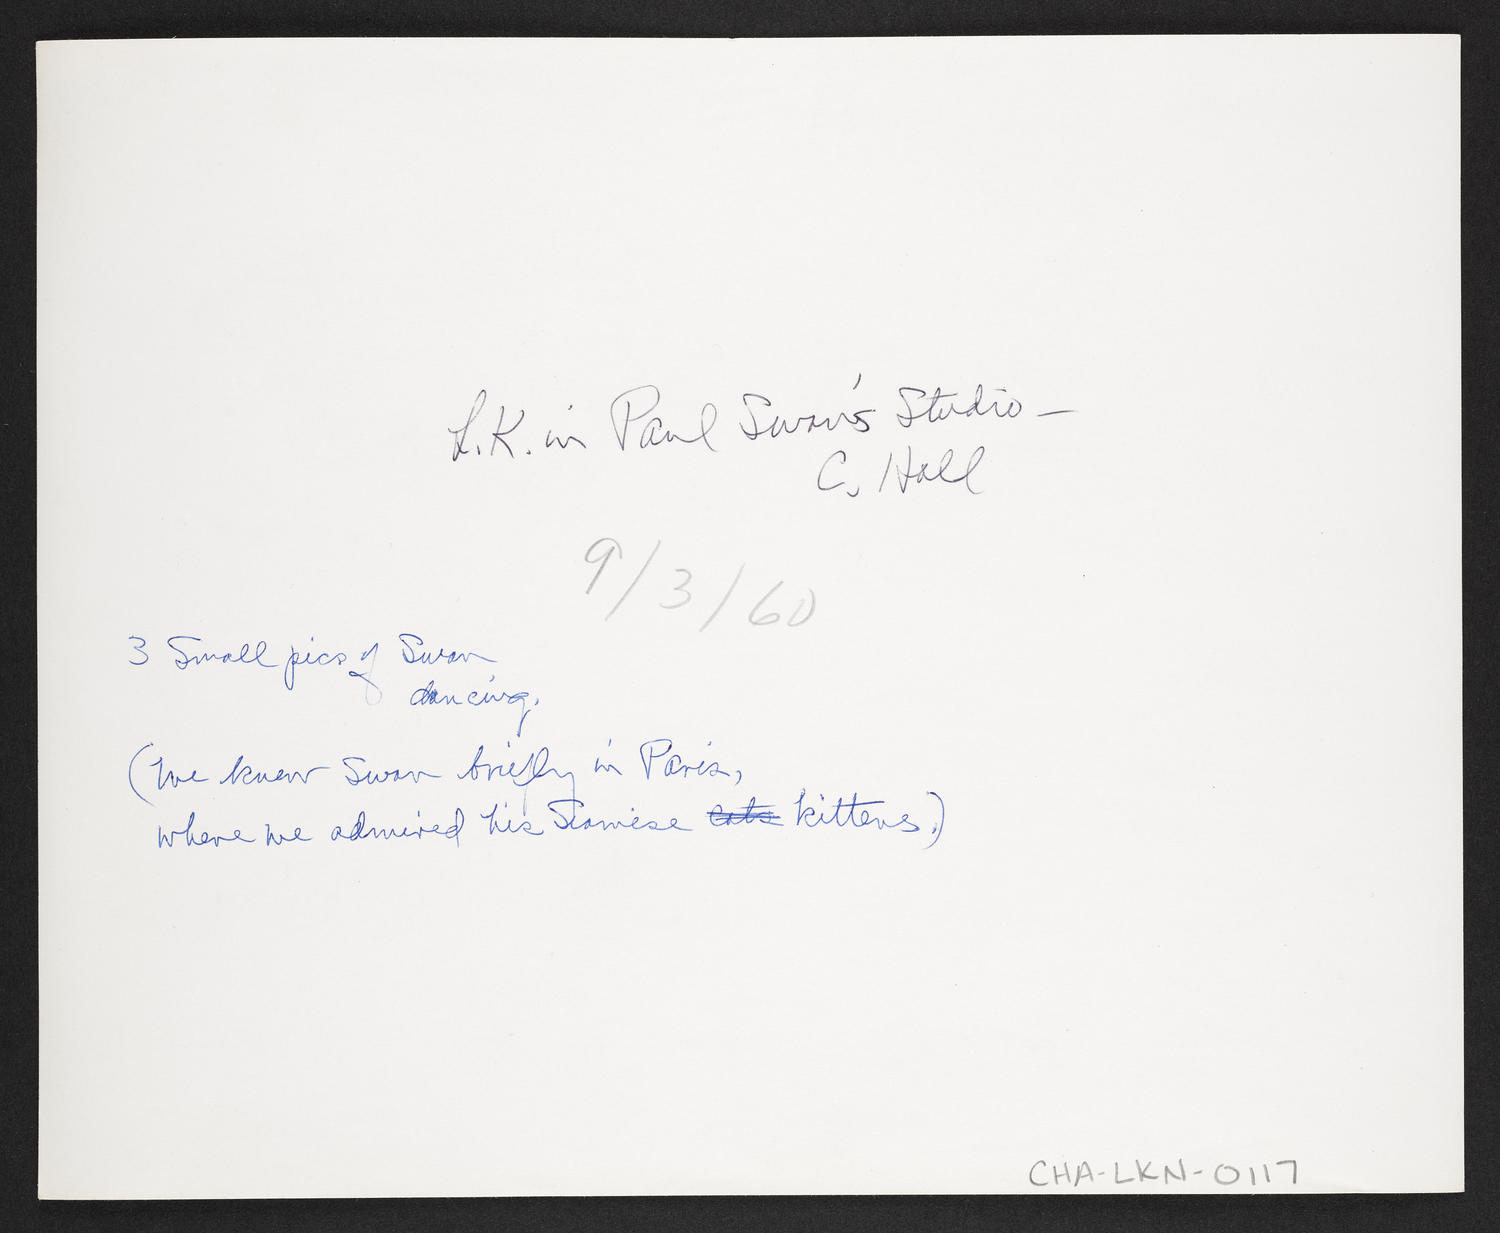 L.K. in Paul Swan's Studio —
C. Hall
9/3/60
3 Small pics of Swan
dancing.
(We knew Swan briefly in Paris,
where we admired his Siamese cats kittens.)
CHA-LKN-0117